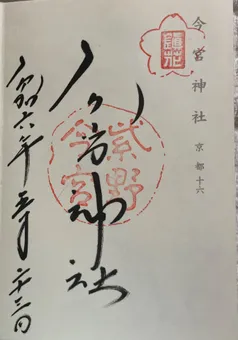 今宮神社 京都十六
鎮花
紫野
今宮
今宮神社
令和六年 月二十三日